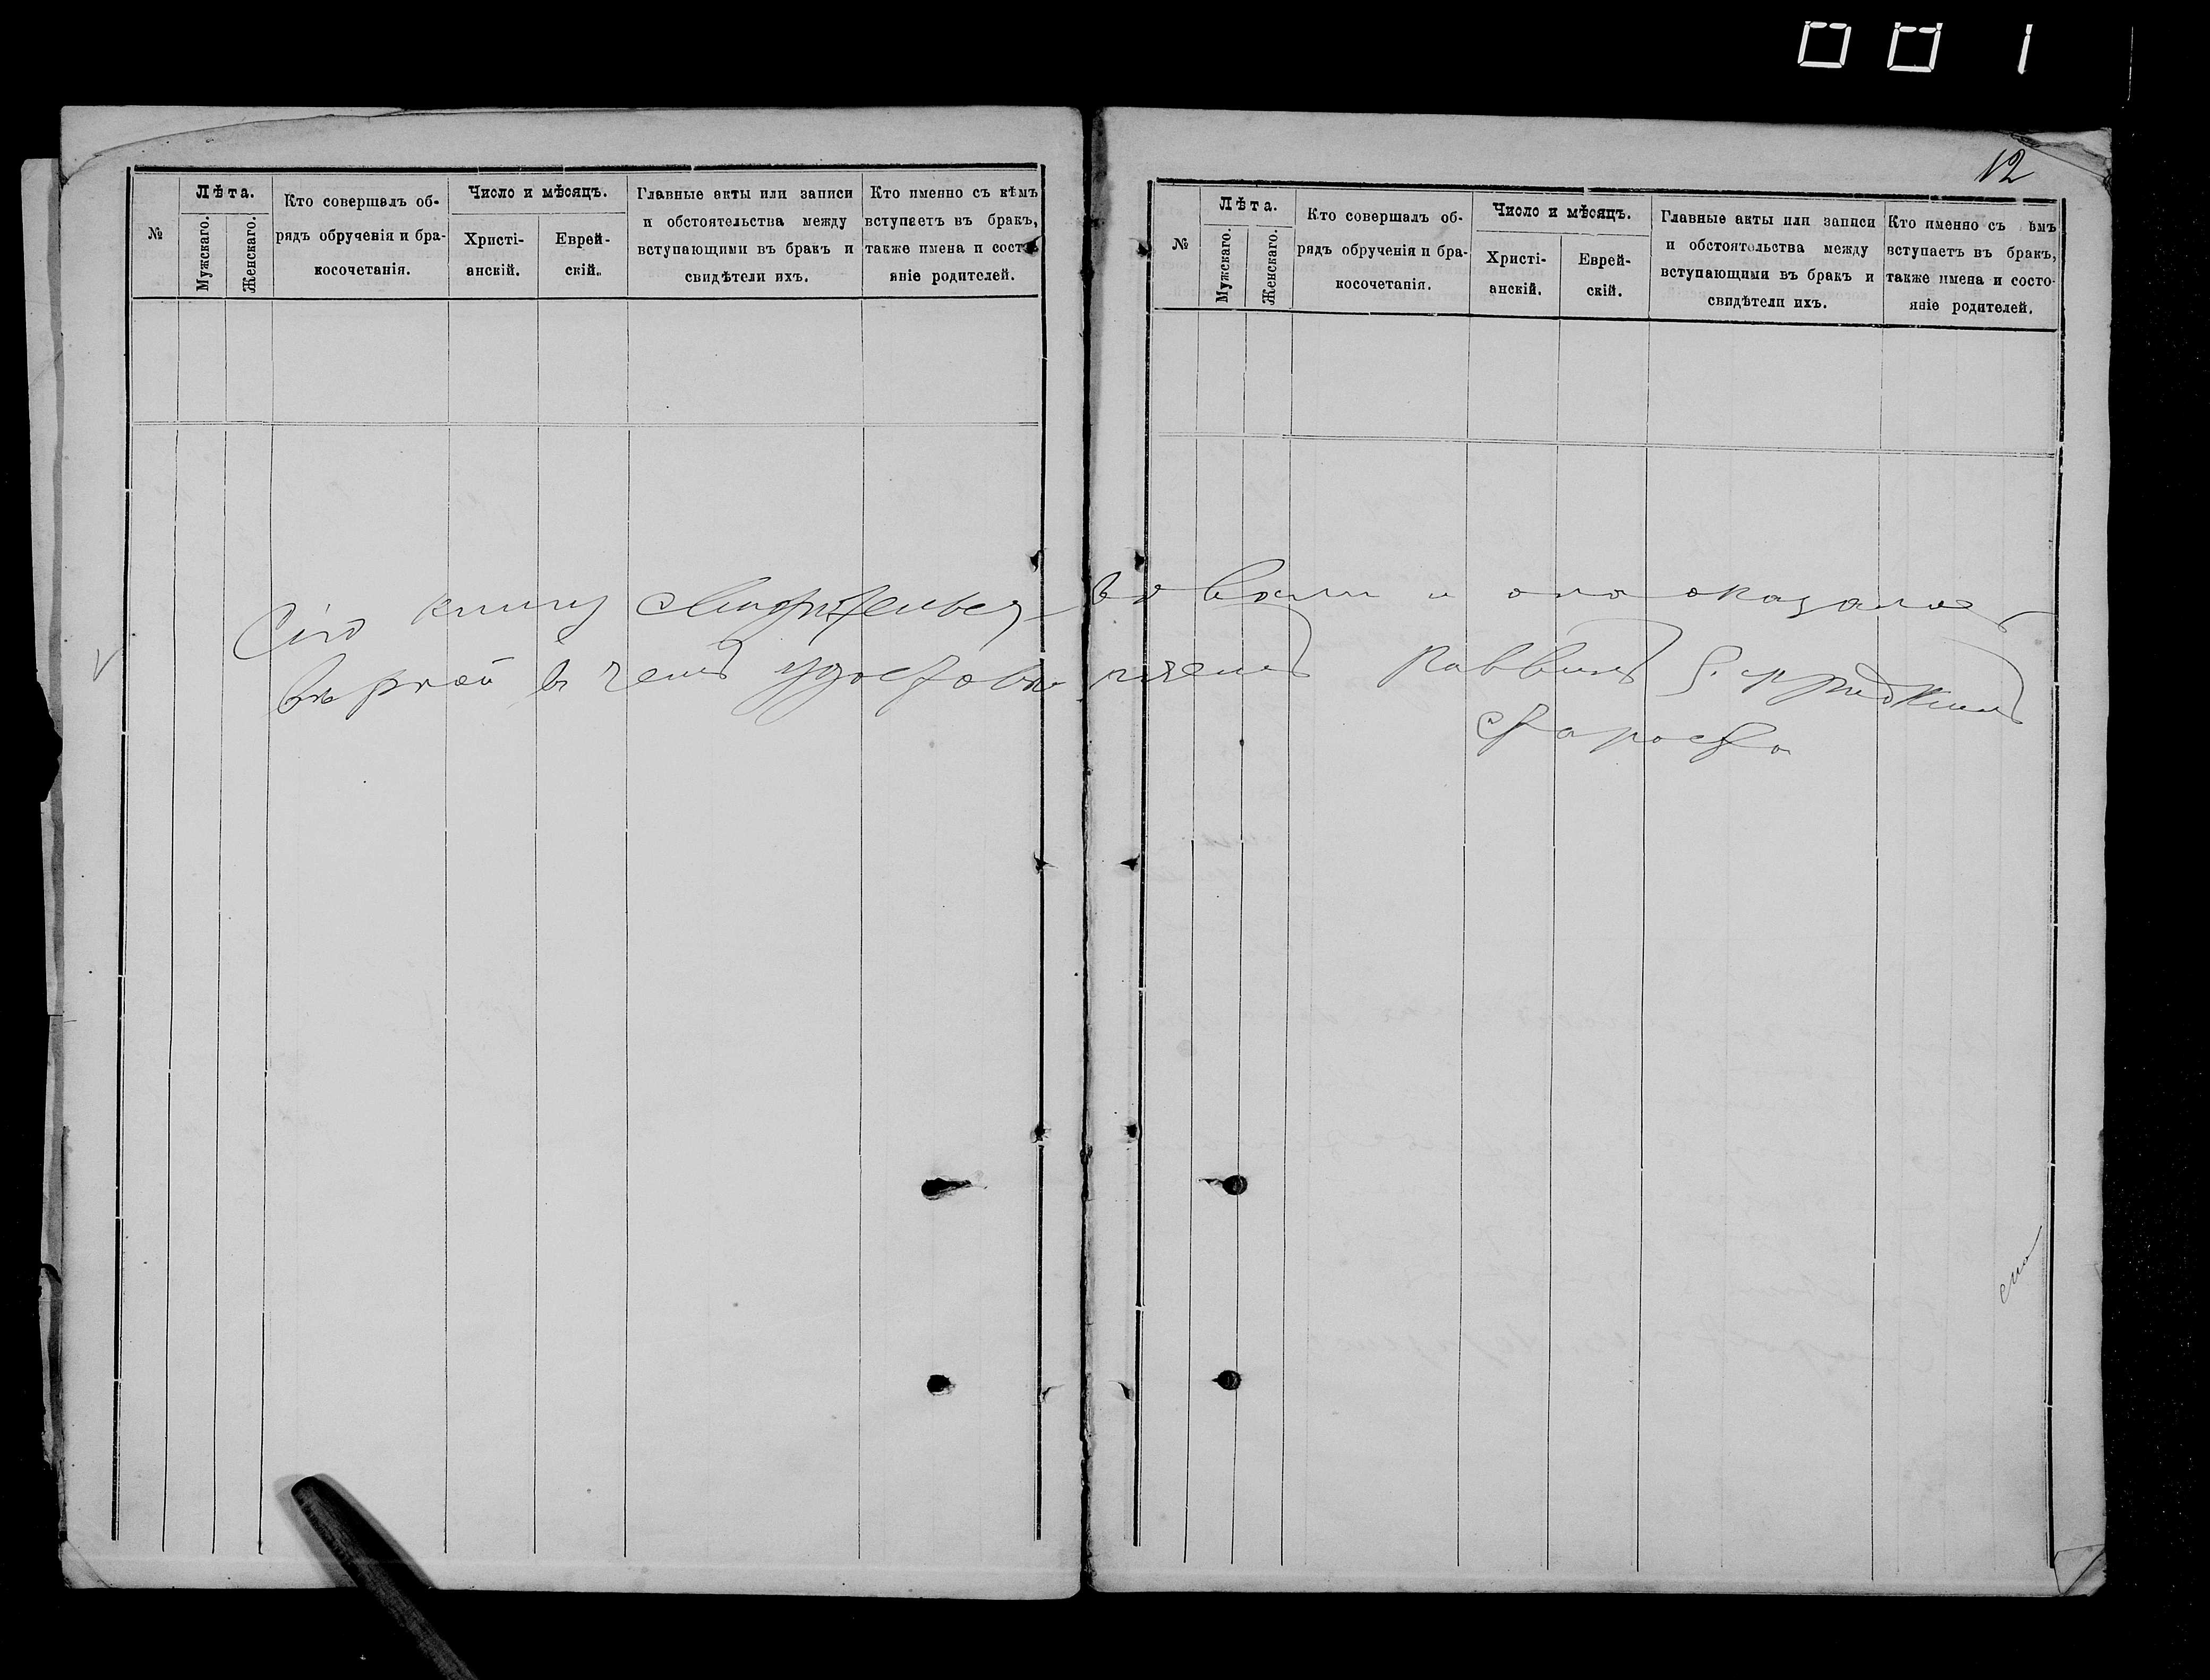 001
12
№
Лѣта.
Мужскаго.
Женскаго.
Кто совершалъ об-
рядъ обрученія и бра-
косочетанія.
Число и мѣсяцъ.
Христі-
анскій.
Еврей-
скій.
Главные акты или записи
и обстоятельства между
вступающими въ бракъ и
свидѣтели ихъ.
Кто именно съ кѣмъ
вступаетъ въ бракъ,
также имена и состо
яніе родителей.
№
Лѣта.
Мужскаго.
Женскаго.
Кто совершалъ об-
рядъ обрученія и бра-
косочетанія.
Число и мѣсяцъ.
Христі-
анскій.
Еврей-
скій.
Главные акты или записи
и обстоятельства между
вступающими въ бракъ и
свидѣтели ихъ.
Кто именно съ ѣмъ
вступаетъ въ бракъ,
также имена и состо-
яніе родителей.
Сію книгу свидѣтельст-вовали и она оказалась
вѣрной в чемъ удостовѣряемъ Раввинъ
Староста